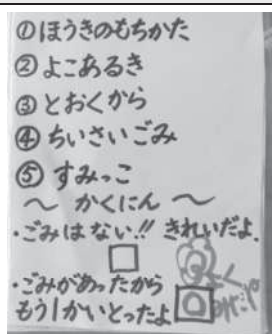 ①ほうきのもちかた
②よこあるき
③とおくから
④ちいさいごみ
⑤すみっこ
～かくにん～
・ごみはない!!きれいだよ.
・ごみがあったから
もう1かいとったよ